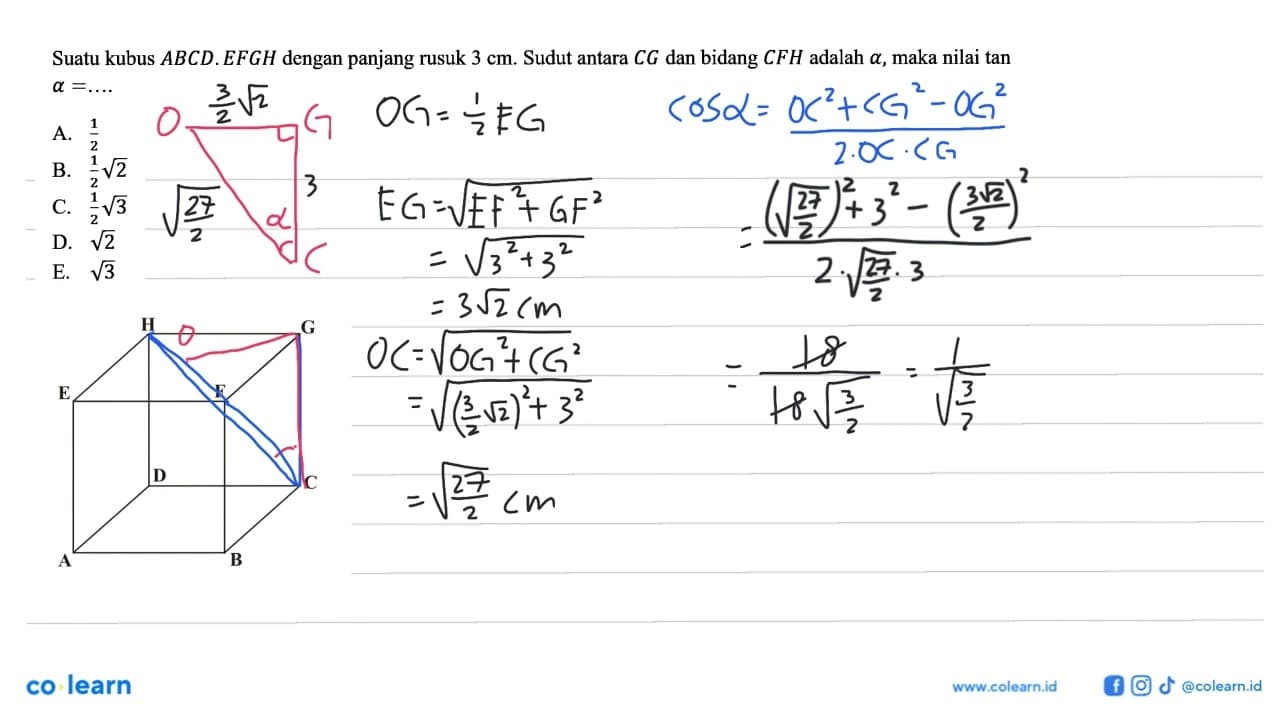 Suatu kubus ABCD.EFGH dengan panjang rusuk 3 cm. Sudut antara CG dan bidang CFH adalah α, maka nilai tan
α =....
A. 1/2
B. 1/2 √2
C. 1/2 √3
D. √2
E. √3
3/2 √2
O G
3
√(27/2)
α
C
H O G
E F
D C
A B
OG = 1/2 EG
EG = √(EF² + GF²)
= √(3² + 3²)
= 3√2 cm
OC = √(OG² + CG²)
= √((3/2 √2)² + 3²)
= √(27/2) cm
cos α = (OC² + CG² - OG²) / (2.OC.CG)
= ((√(27/2))² + 3² - (3√2/2)²) / (2.√(27/2).3)
= 18 / (18√(3/2)) = 1 / √(3/2)
co learn
www.colearn.id
@colearn.id